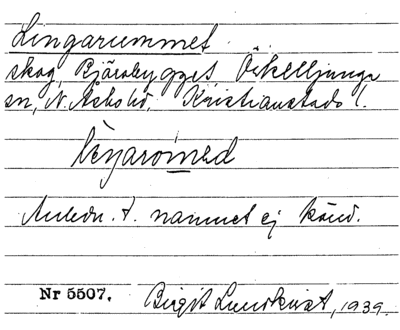 Lingarummet
skog, Bjäraby gget Örkelljunga
sn, N. Åsbo hd. Kristianstads l.
Anledn. t. namnet ej känd.
Nr 5507. Birgit Lundkvist, 1939.